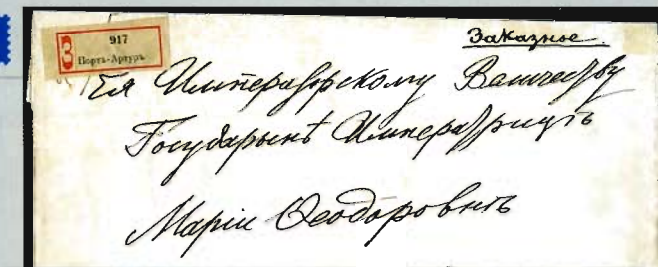 Заказное.
З
917
Портъ-Артуръ
Ея Императорскому Величеству
Государынѣ Императрицѣ
Маріи Ѳеодоровнѣ